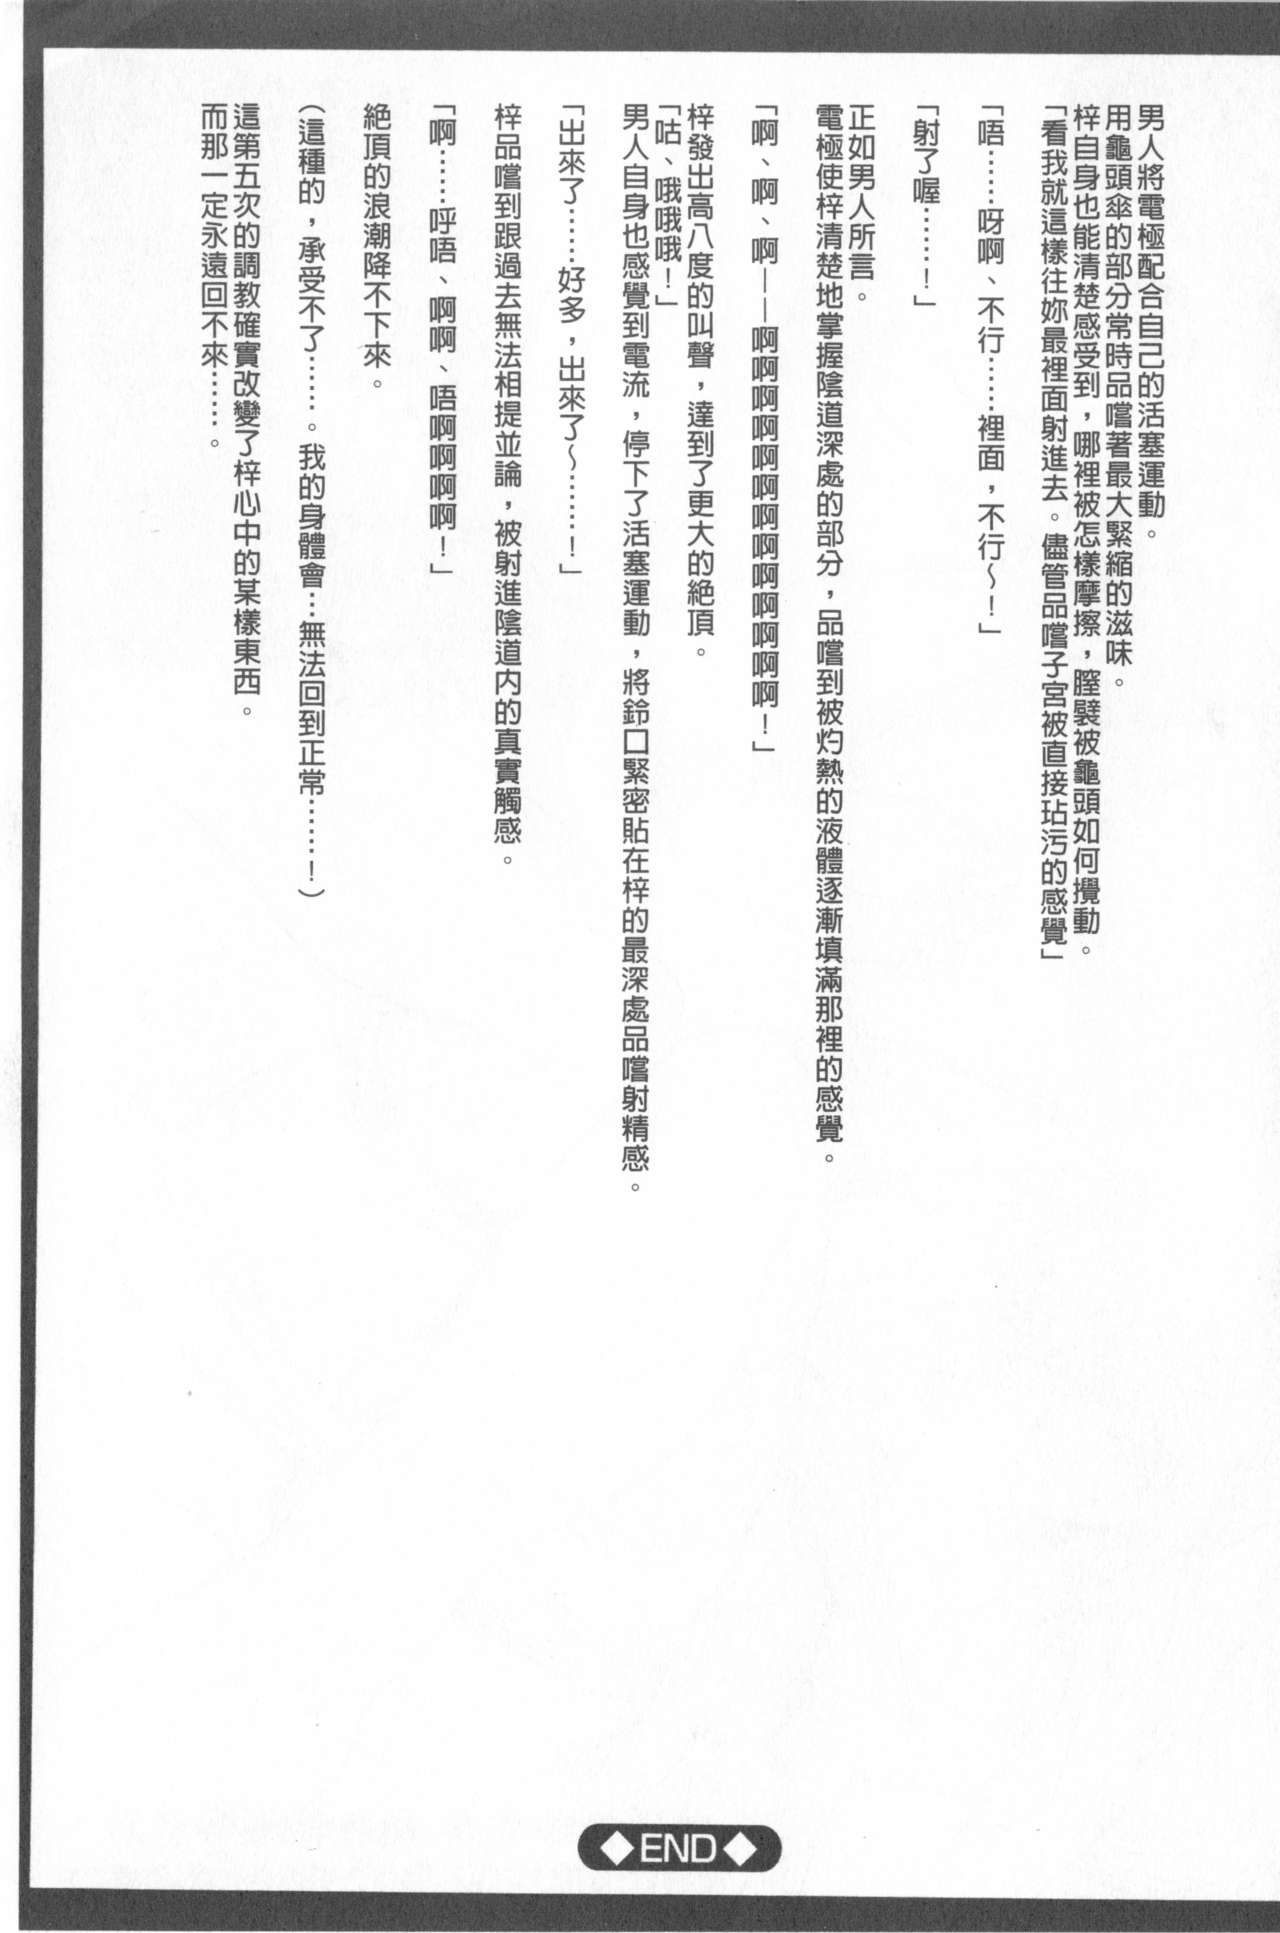 男人將電極配合自己的活塞運動。
用龜頭傘的部分常時品嚐著最大緊縮的滋味。
梓自身也能清楚感受到，哪裡被怎樣摩擦，膣襞被龜頭如何攪動。
「看我就這樣往妳最裡面射進去。儘管品嚐子宮被直接玷污的感覺」
「唔……呀啊、不行……裡面，不行～！」
「射了喔……！」
正如男人所言。
電極使梓清楚地掌握陰道深處的部分，品嚐到被灼熱的液體逐漸填滿那裡的感覺。
「啊、啊、啊——啊啊啊啊啊啊啊啊啊啊啊啊啊！」
梓發出高八度的叫聲，達到了更大的絕頂。
「咕、哦哦哦！」
男人自身也感覺到電流，停下了活塞運動，將鈴口緊密貼在梓的最深處品嚐射精感。
「出來了……好多，出來了～……！」
梓品嚐到跟過去無法相提並論，被射進陰道內的真實觸感。
「啊……呼唔、啊啊、唔啊啊啊啊！」
絕頂的浪潮降不下來。
（這種的，承受不了……。我的身體會…無法回到正常……！）
這第五次的調教確實改變了梓心中的某樣東西。
而那一定永遠回不來……。
◆END◆